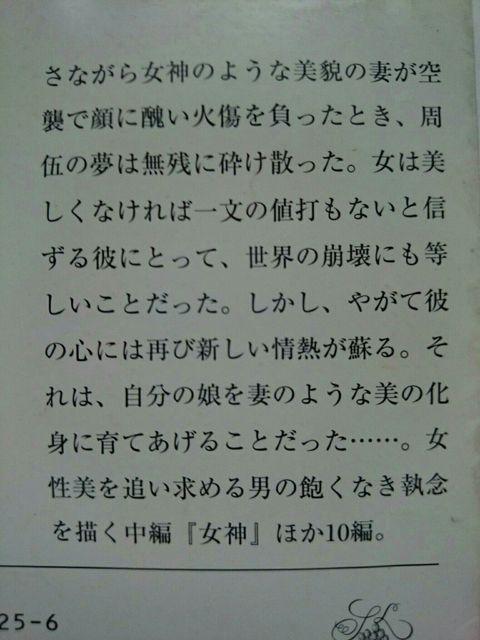 さながら女神のような美貌の妻が空
襲で顔に醜い火傷を負ったとき、周
伍の夢は無残に砕け散った。女は美
しくなければ一文の値打もないと信
ずる彼にとって、世界の崩壊にも等
しいことだった。しかし、やがて彼
の心には再び新しい情熱が蘇る。そ
れは、自分の娘を妻のような美の化
身に育てあげることだった……。女
性美を追い求める男の飽くなき執念
を描く中編『女神』ほか10編。
25-6